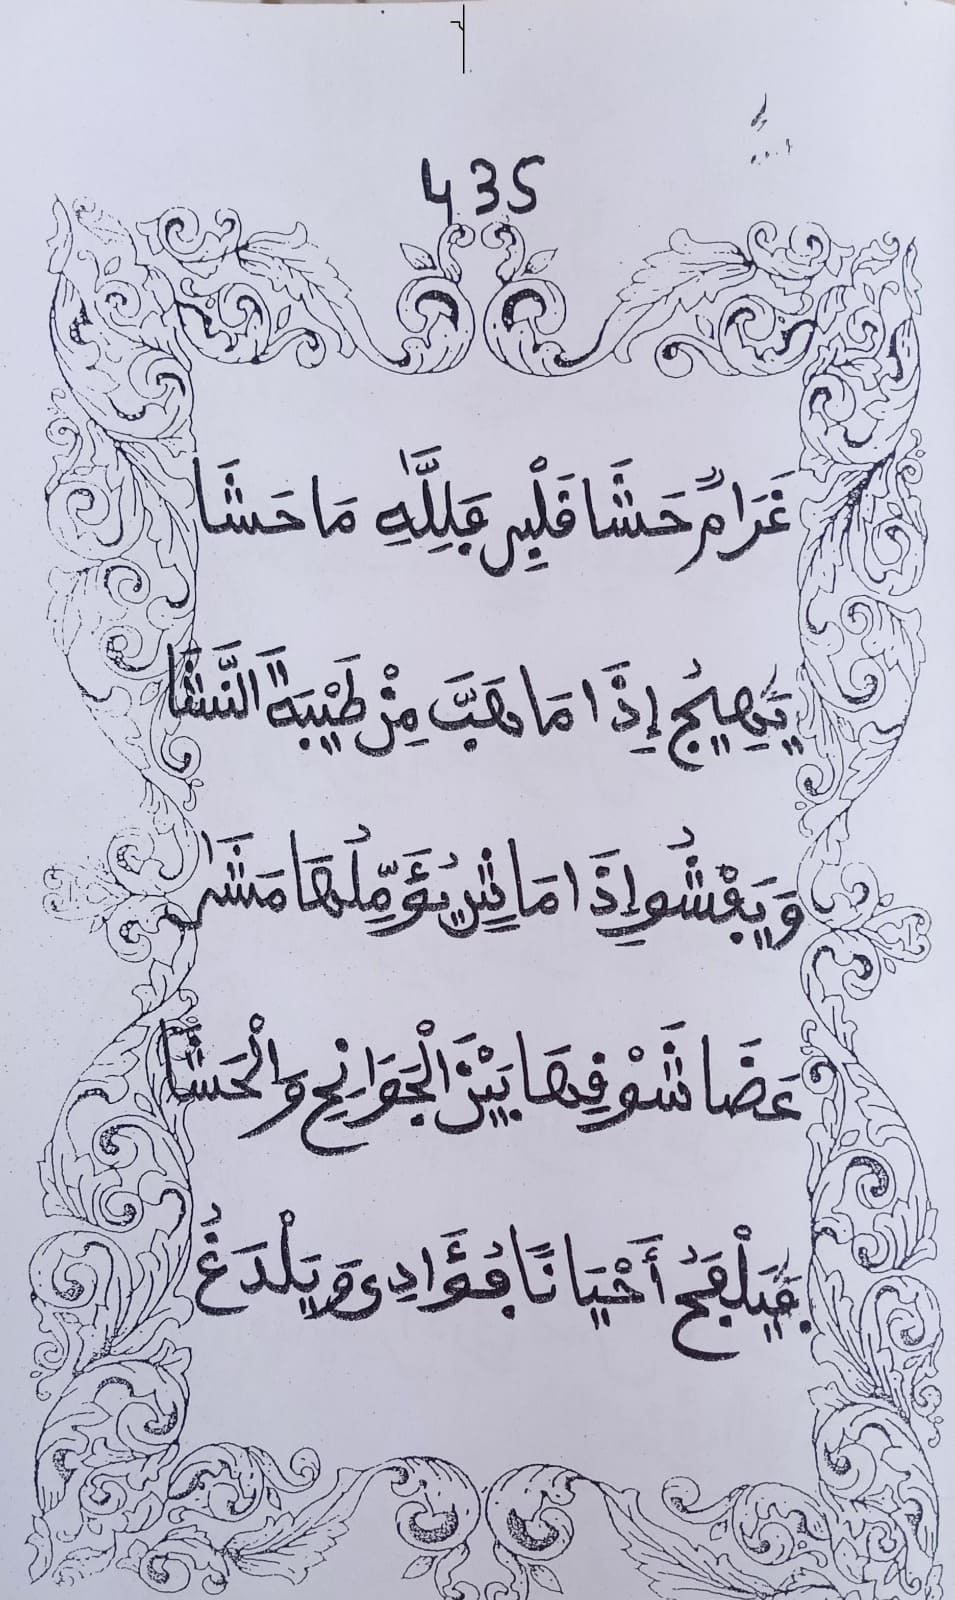 435
غَرَامٌ حَشَا قَلْبِي فَلِلَّهِ مَا حَشَا
يَهِيجُ إِذَا مَا هَبَّ مِنْ طَيْبَةَ النَّشَا
وَيَغْشُو إِذَا مَا شِينَ يُؤَمِّلُهَا مَشَى
غَضَا شَوْقِهَا بَيْنَ الْجَوَانِحِ وَالْحَشَا
فَيَلْفَحُ أَحْيَانًا فُؤَادِي وَيَلْدَغُ